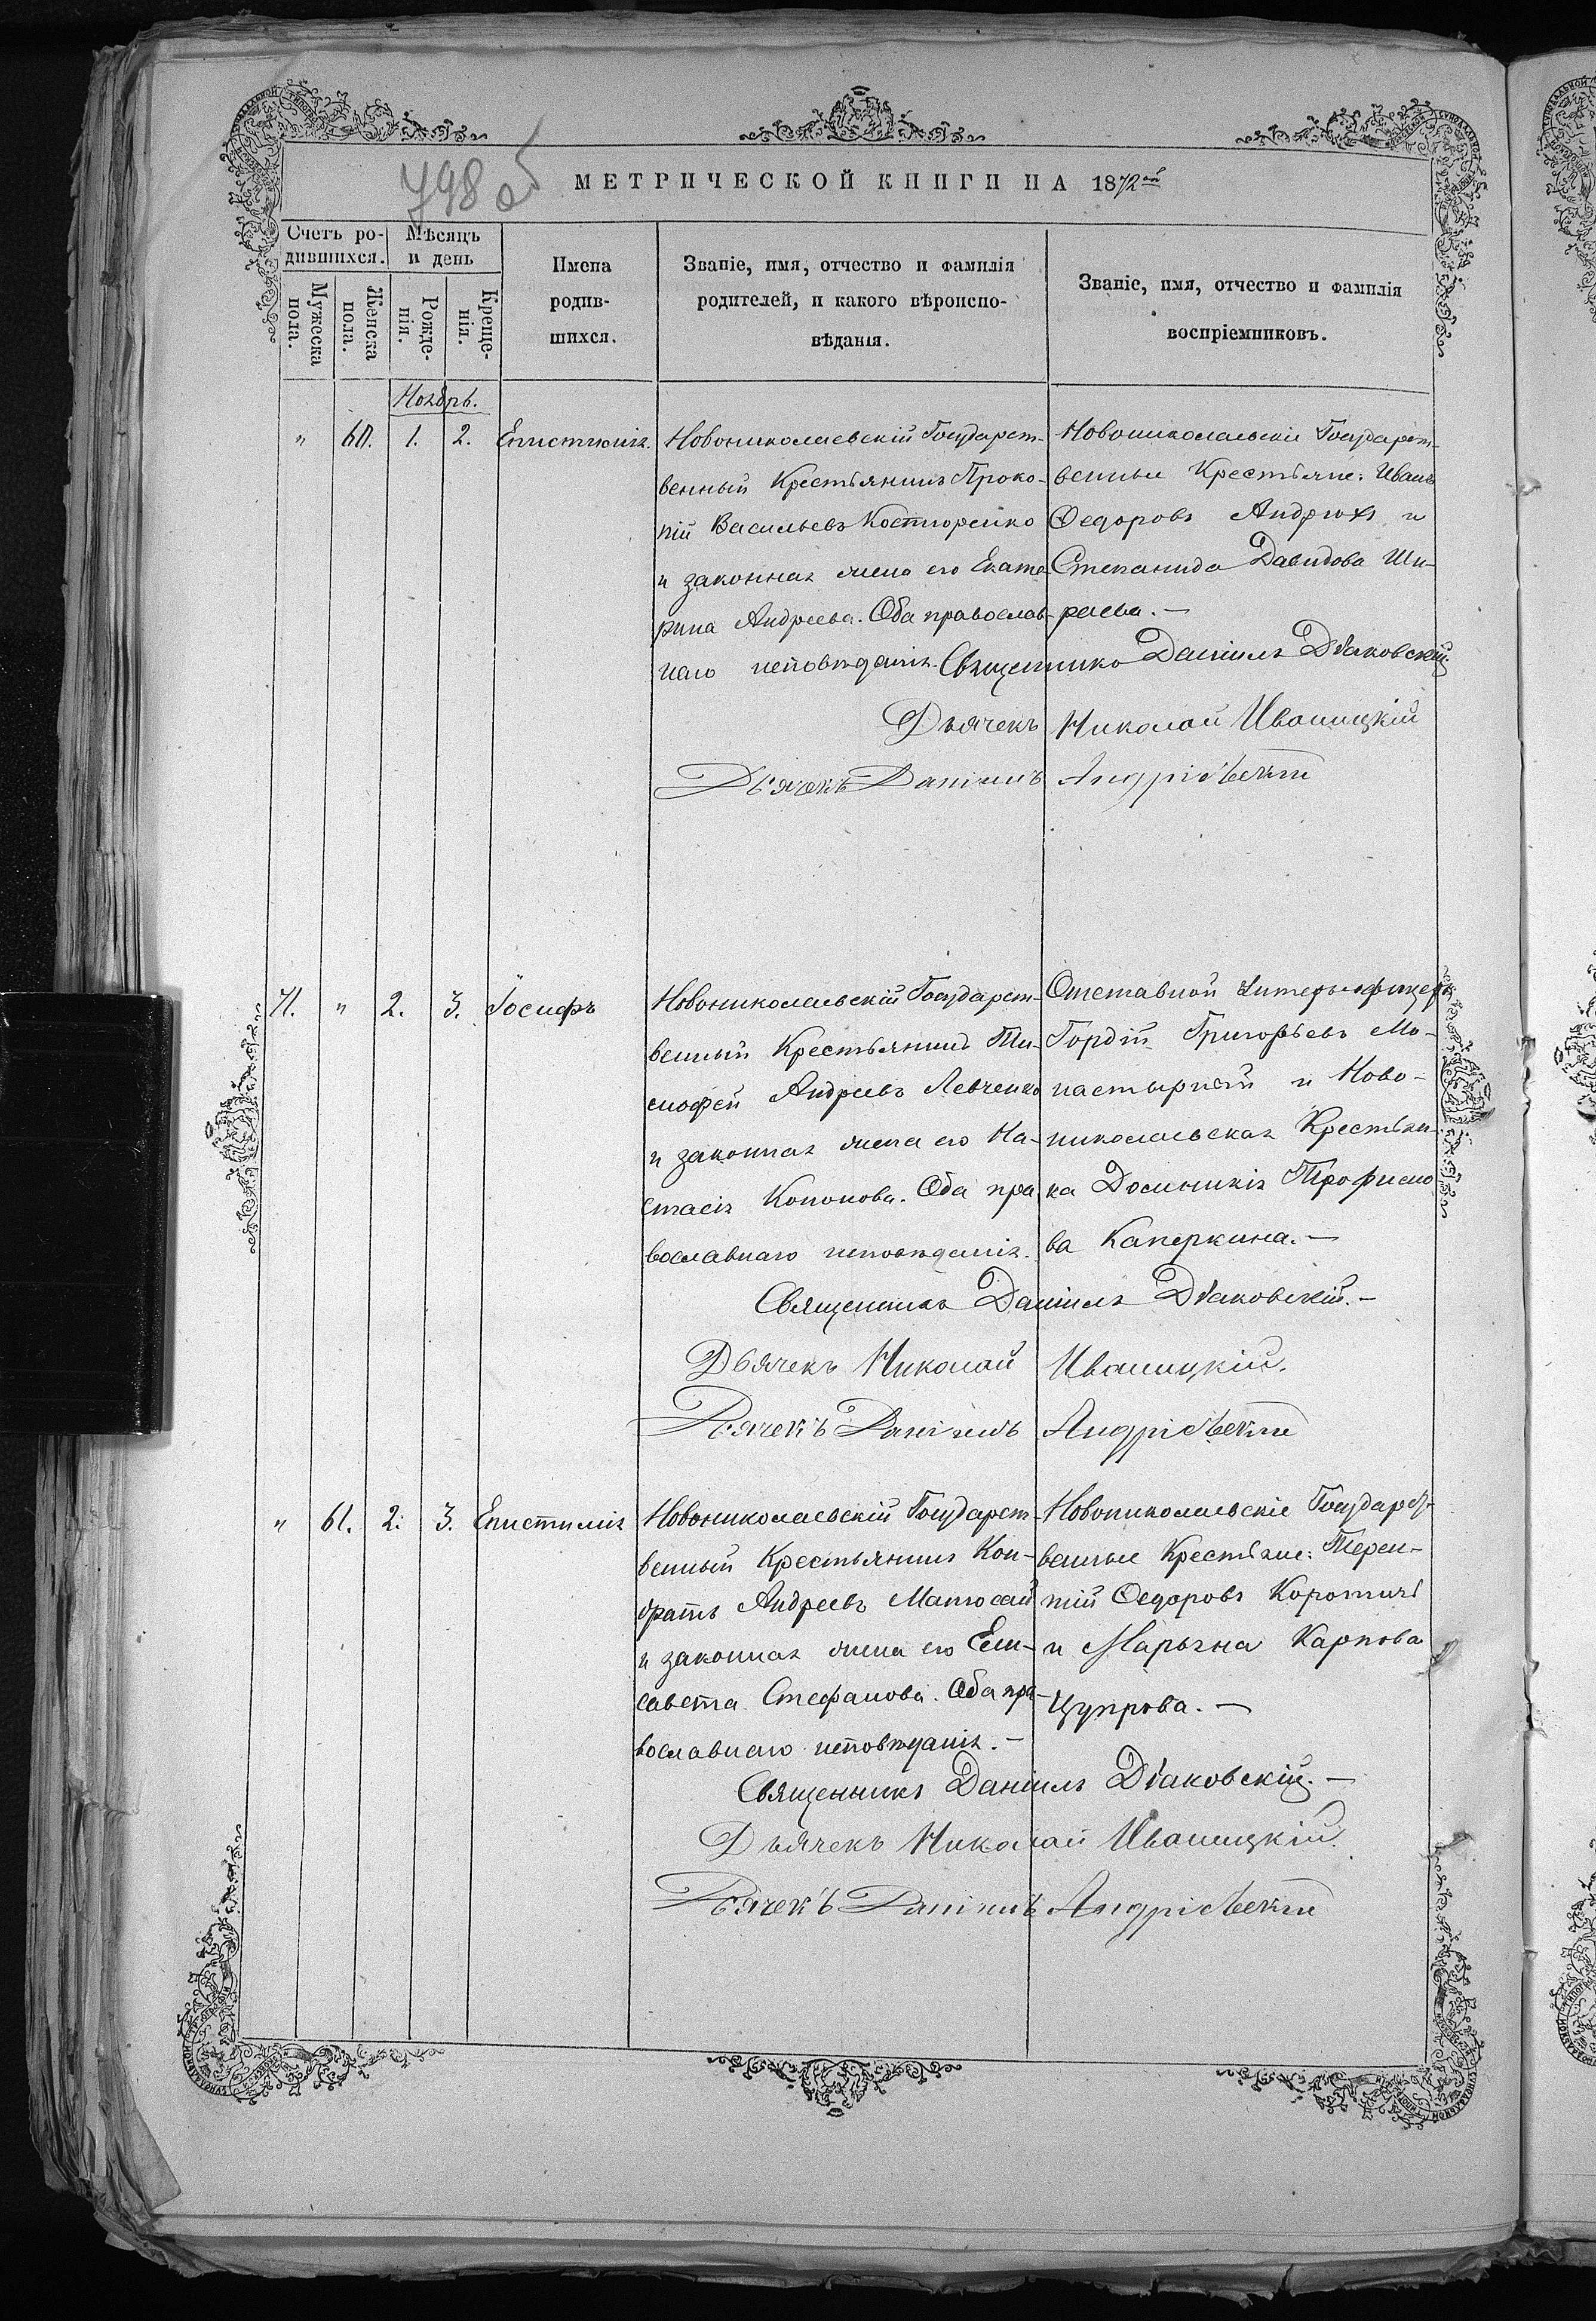 798 об
МЕТРИЧЕСКОЙ КНИГИ НА 1872ой
Счетъ родившихся.
Мужеска пола.
Женска пола.
Мѣсяцъ и день
Рожденія.
Крещенія.
Имена родившихся.
Званіе, имя, отчество и фамилія
родителей, и какого вѣроиспо-
вѣданія.
Званіе, имя, отчество и фамилія
воспріемниковъ.
Ноябрь.
" 60. 1. 2. Епистимія.
Новониколаевскій Государст-
венный Крестьянинъ Проко-
пій Васильевъ Костюренко
и законная жена его Екате-
рина Андреева. Оба православ-
наго исповѣданія.
Новониколаевскіе Государст-
венные Крестьяне: Иванъ
Ѳедоровъ Андрюх и
Степанида Давидова Ши-
раева. —
Священникъ Даніилъ Дьаковскій.
Дьячекъ Николай Иваницкій
Дьячекъ Даніилъ Андріевскій
71. " 2. 3. Іосифъ
Новониколаевскій Государст-
венный Крестьянинъ Ти-
мофей Андреевъ Левченко
и законная жена его На-
стасія Кононова. Оба пра-
вославнаго исповѣданія.
Отставной Унтеръ-офицеръ
Гордій Григорьевъ Мо-
настырній и Ново-
николаевская Крестьян-
ка Домникія Трофимо
ва Каперкина. —
Священникъ Даніилъ Дьаковскій. —
Дьячекъ Николай Иваницкій.
Дьячекъ Даніилъ Андріевскій
" 61. 2. 3. Епистимія
Новониколаевскій Государст-
венный Крестьянинъ Кон-
дратъ Андреевъ Матюсай
и законная жена его Ели-
савета Стефанова. Оба пра-
вославнаго исповѣданія. —
Новониколаевскіе Государст-
венные Крестьяне: Терен-
тій Ѳедоровъ Коротичъ
и Марьяна Карпова
Цупрова. —
Священникъ Даніилъ Дьаковскій. —
Дьячекъ Николай Иваницкій.
Дьячекъ Даніилъ Андріевскій